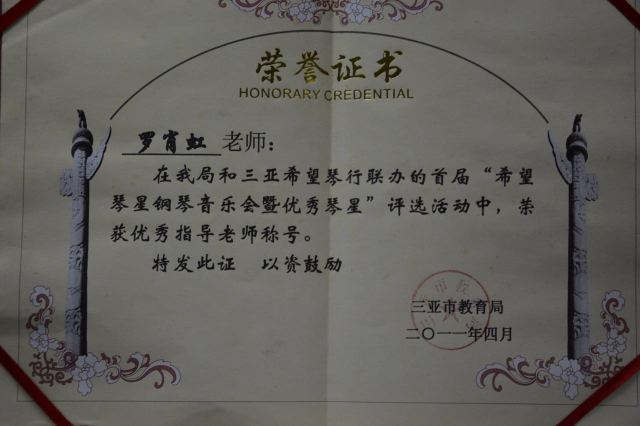 荣誉证书
HONORARY CREDENTIAL
罗肖虹 老师：
在我局和三亚希望琴行联办的首届“希望
琴星钢琴音乐会暨优秀琴星”评选活动中，荣
获优秀指导老师称号。
特发此证 以资鼓励
三亚市教育局
二〇一一年四月